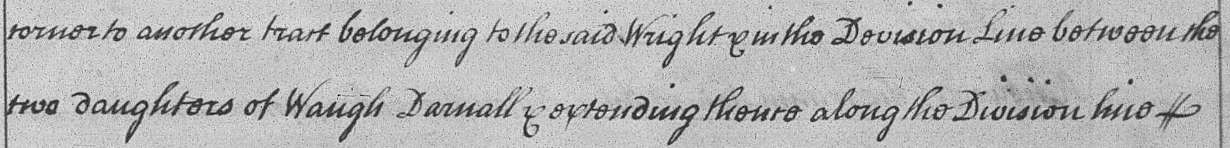 corner to another tract belonging to the said Wright & in the Devision Line between the
two daughters of Waugh Darnall & extending thence along the Division line